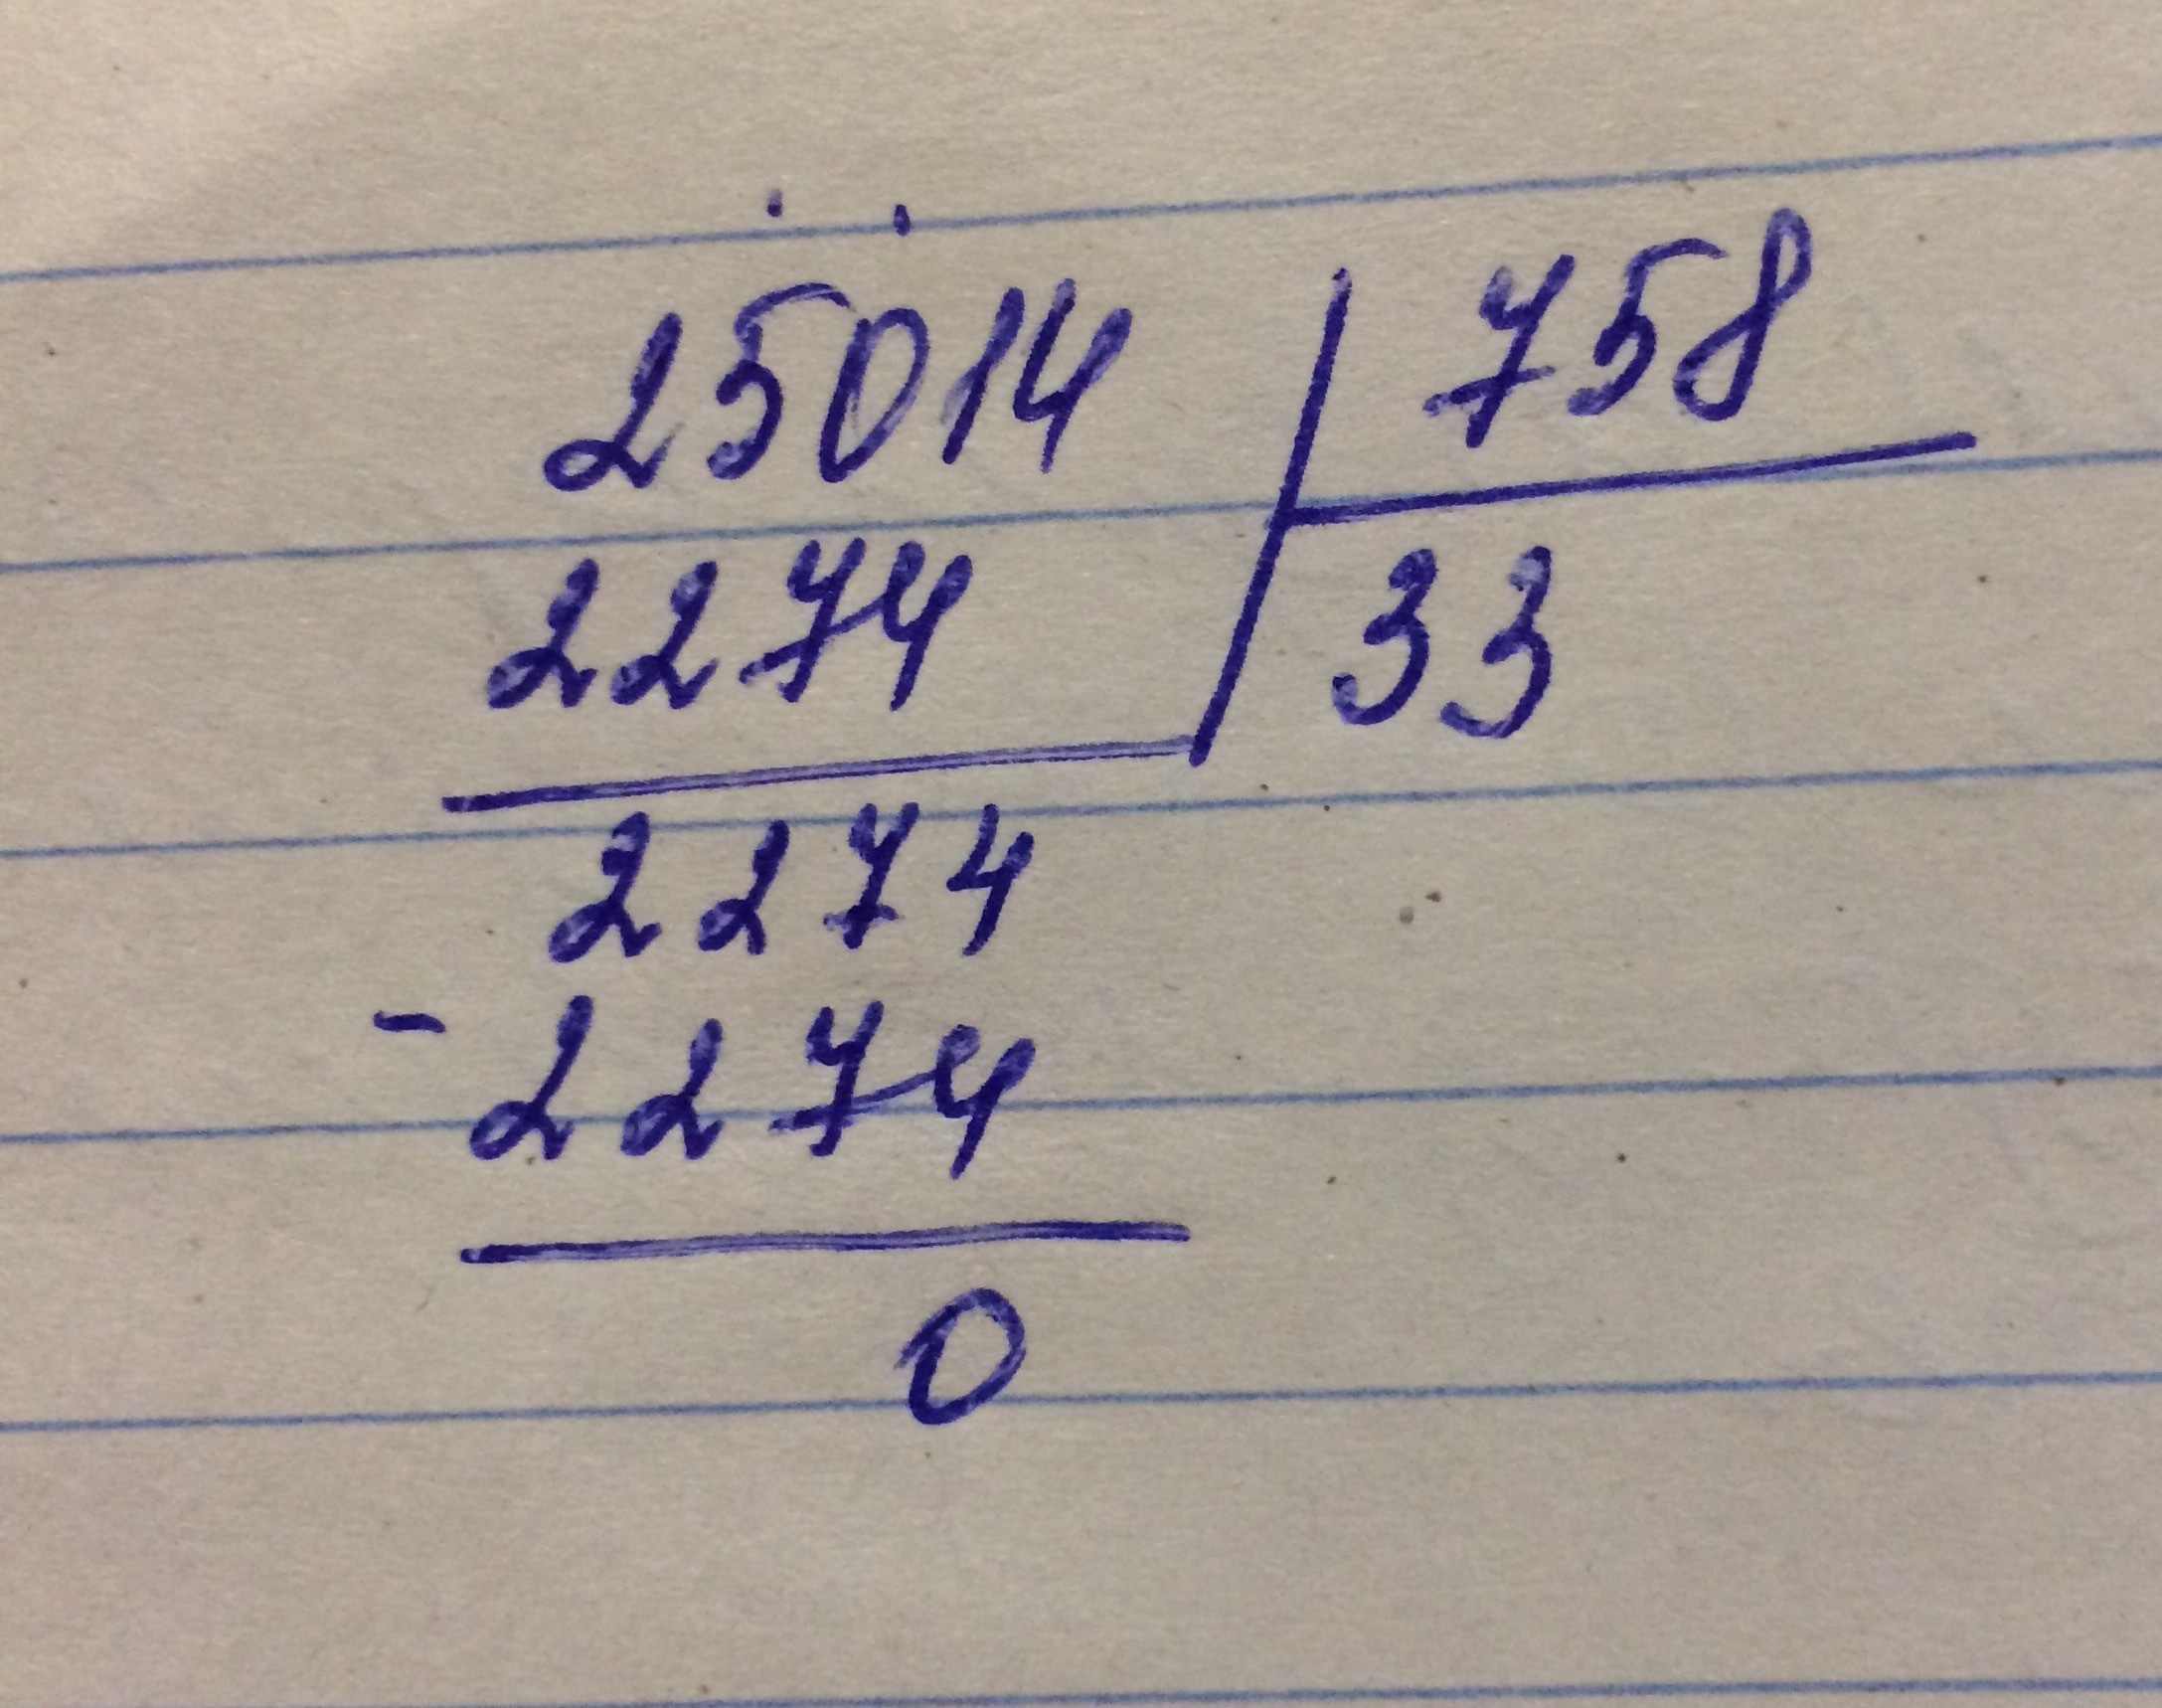 25014 | 758
2274 | 33
2274
- 2274
0